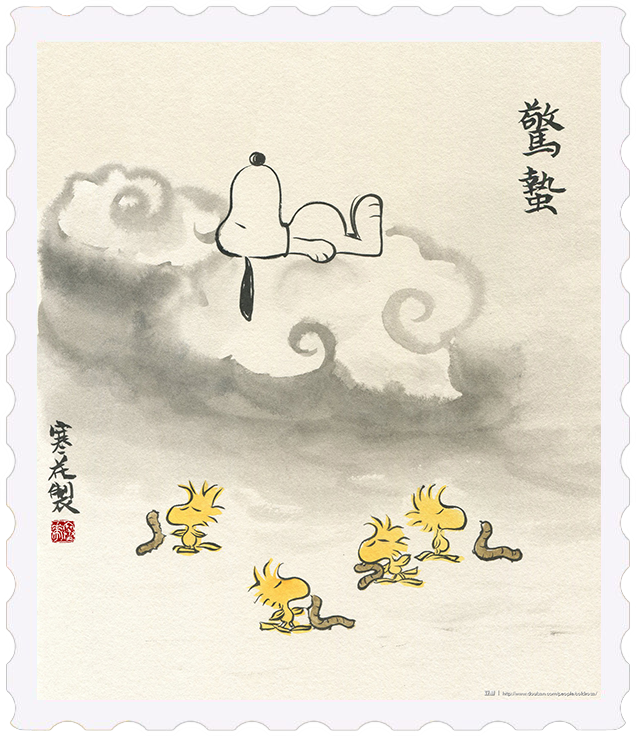 驚蟄
寒花製
http://www.douban.com/people/coldrose/